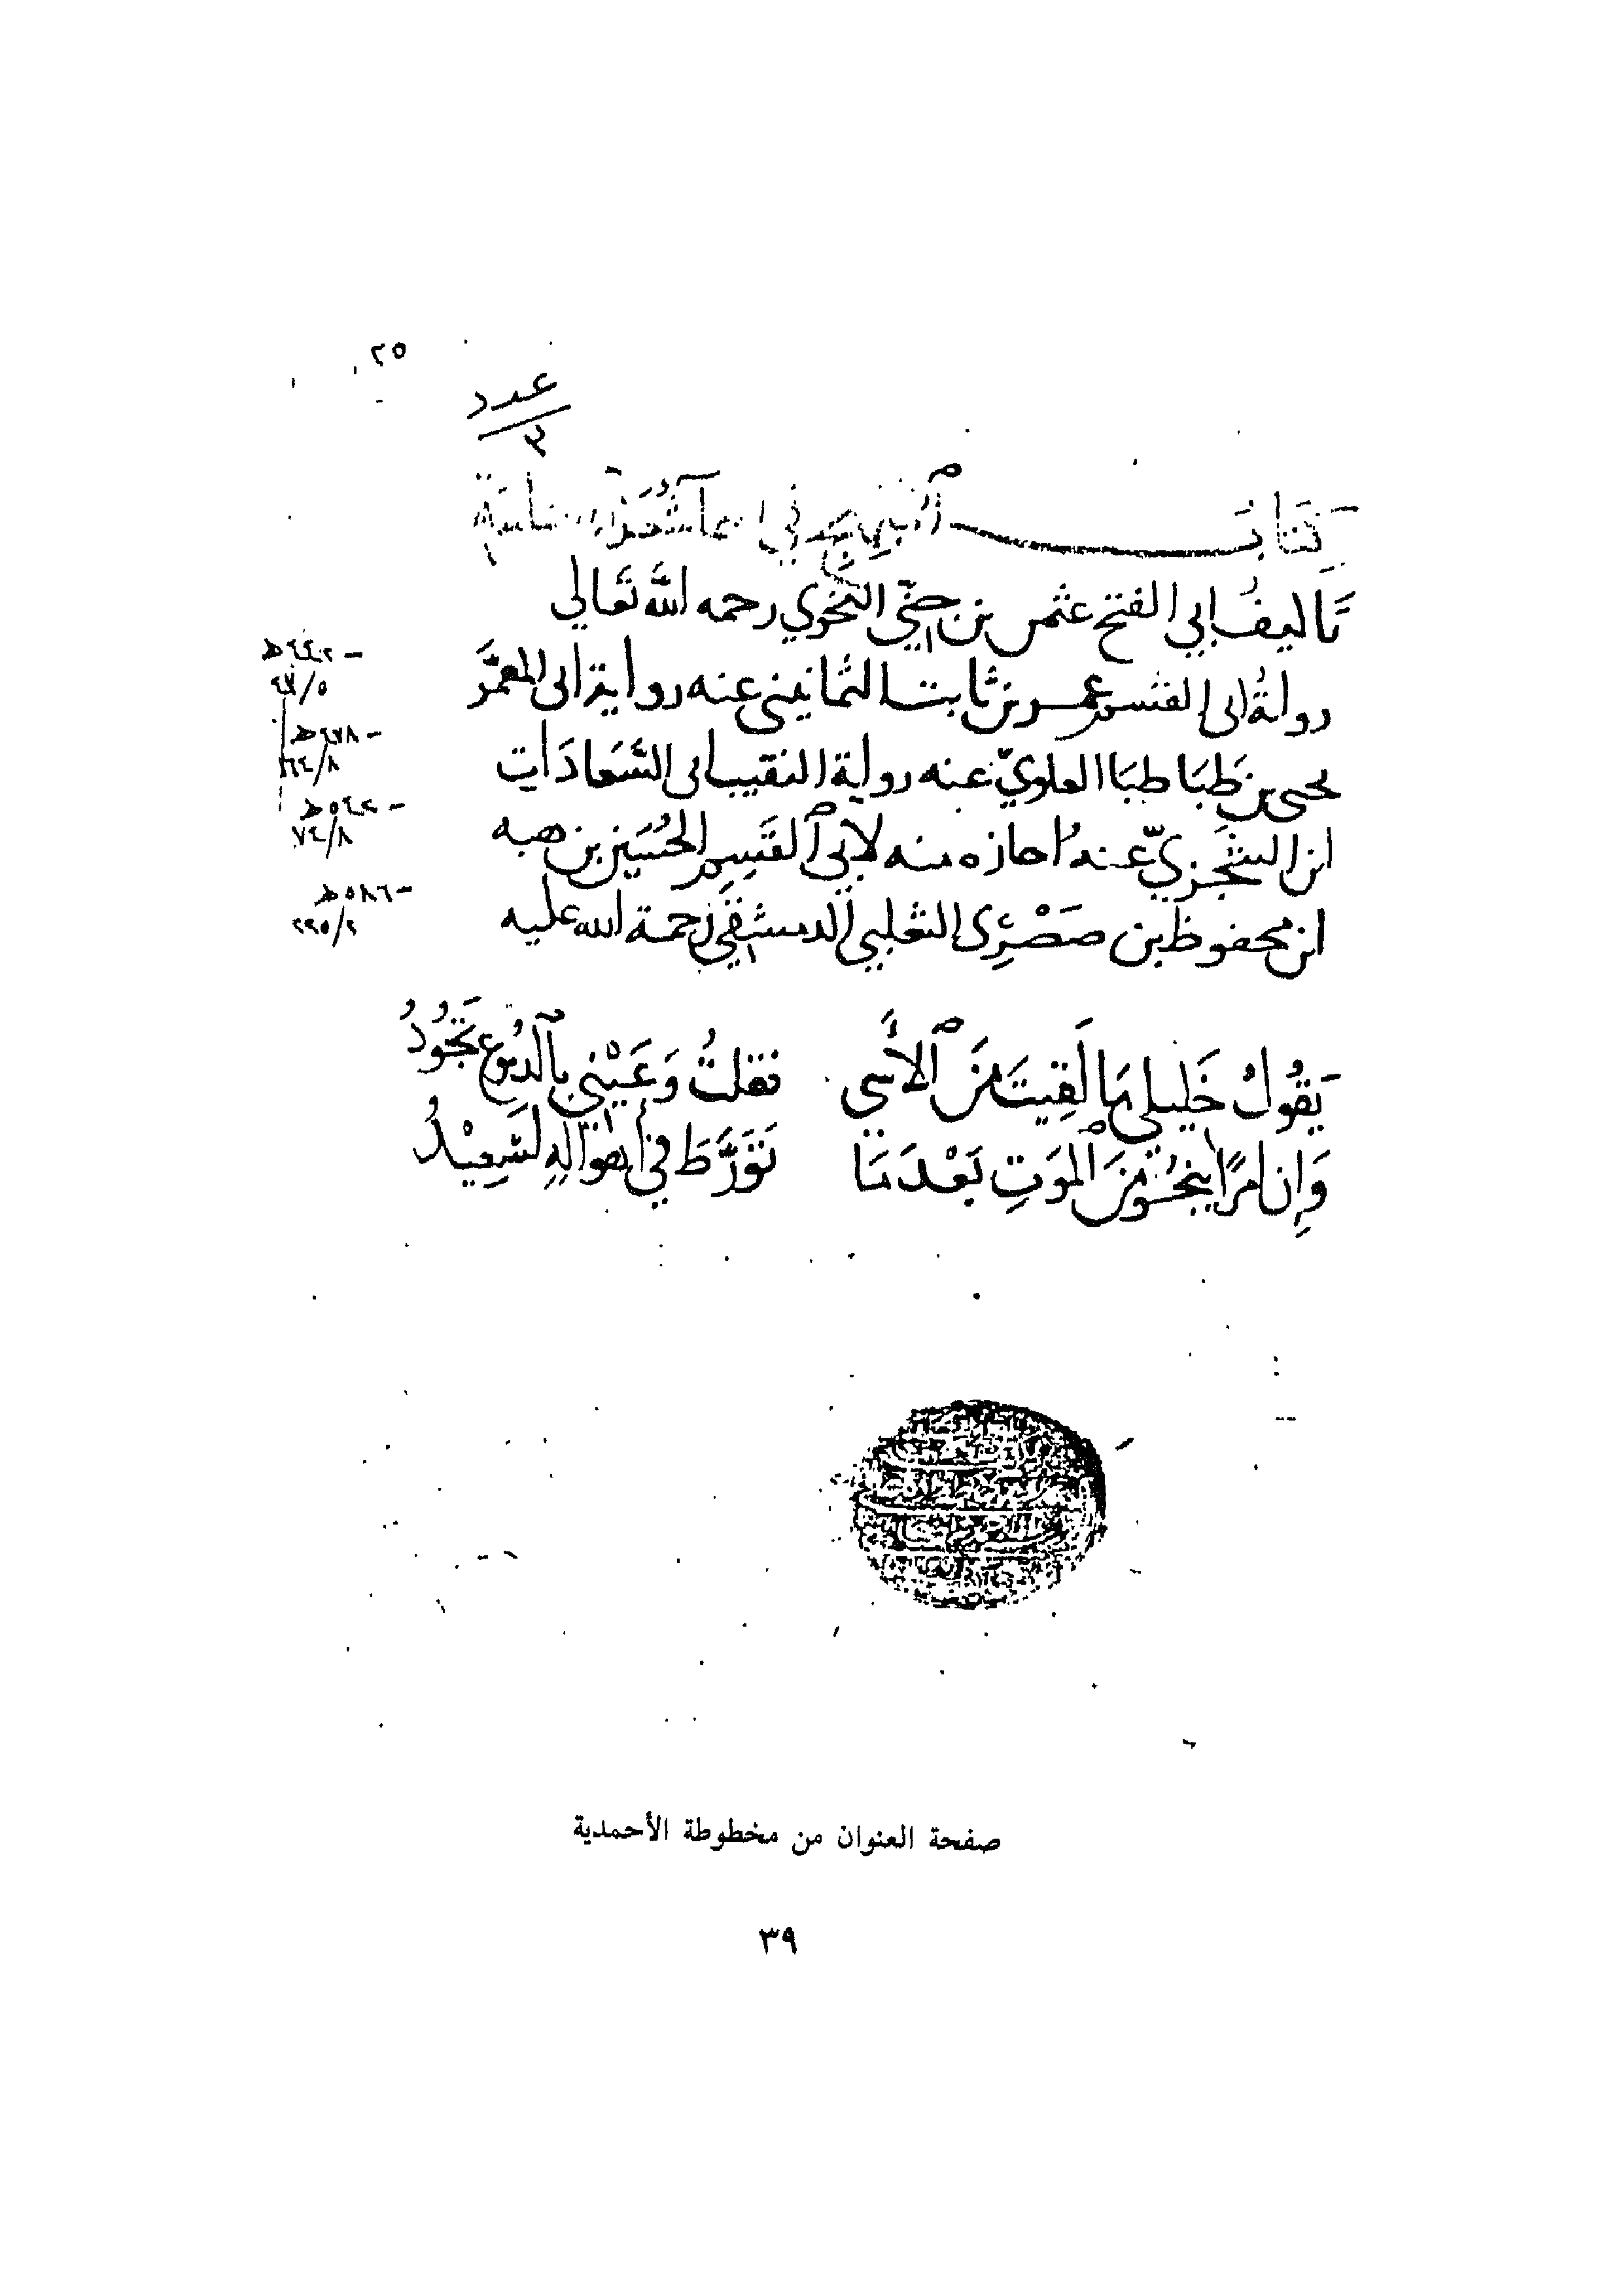 ٢٥
عدد
٣
كِتَابُ المُبْهِج في اسمآء شُعَرَاء الحماسَة
تَأليفُ ابي الفتح عثمن بن جِنّي النَّحْوي رحمه اللَّه تَعَالي
روايةُ ابى القسم عمر بن ثابت الثمانيني عنه رواية ابى المُعَمَّر
يحيى بن طَبَا طبَا العلويّ عنه رواية النقيب ابى السَّعَادَاتِ
ابن الشَّجَريّ عنه اجازه منه لابي القَسِم الحُسَين بن هبه
ابن محفوظ بن صَصْرَى الثعلبي الدمشقي رحمة الله عليه
- ٤٤٢ هـ
٥/
- ٤٧٨ هـ
٨/٦٤
- ٥٤٢ هـ
٨/٧٤
- ٥٨٦ هـ
٢/٢٩٥
يَقُولُ خَليلي مَا لَقِيتَ مِنَ الأَسي فقلتُ وَعَيْني بِالدُمُوع تَجُوُدُ
وَإِن امرًا ينجُو مِنَ المَوتِ بَعْدَ مَا تَوَرَّطَ في أهوالِهِ لَسَعِيْدُ
صفحة العنوان من مخطوطة الأحمدية
٣٩